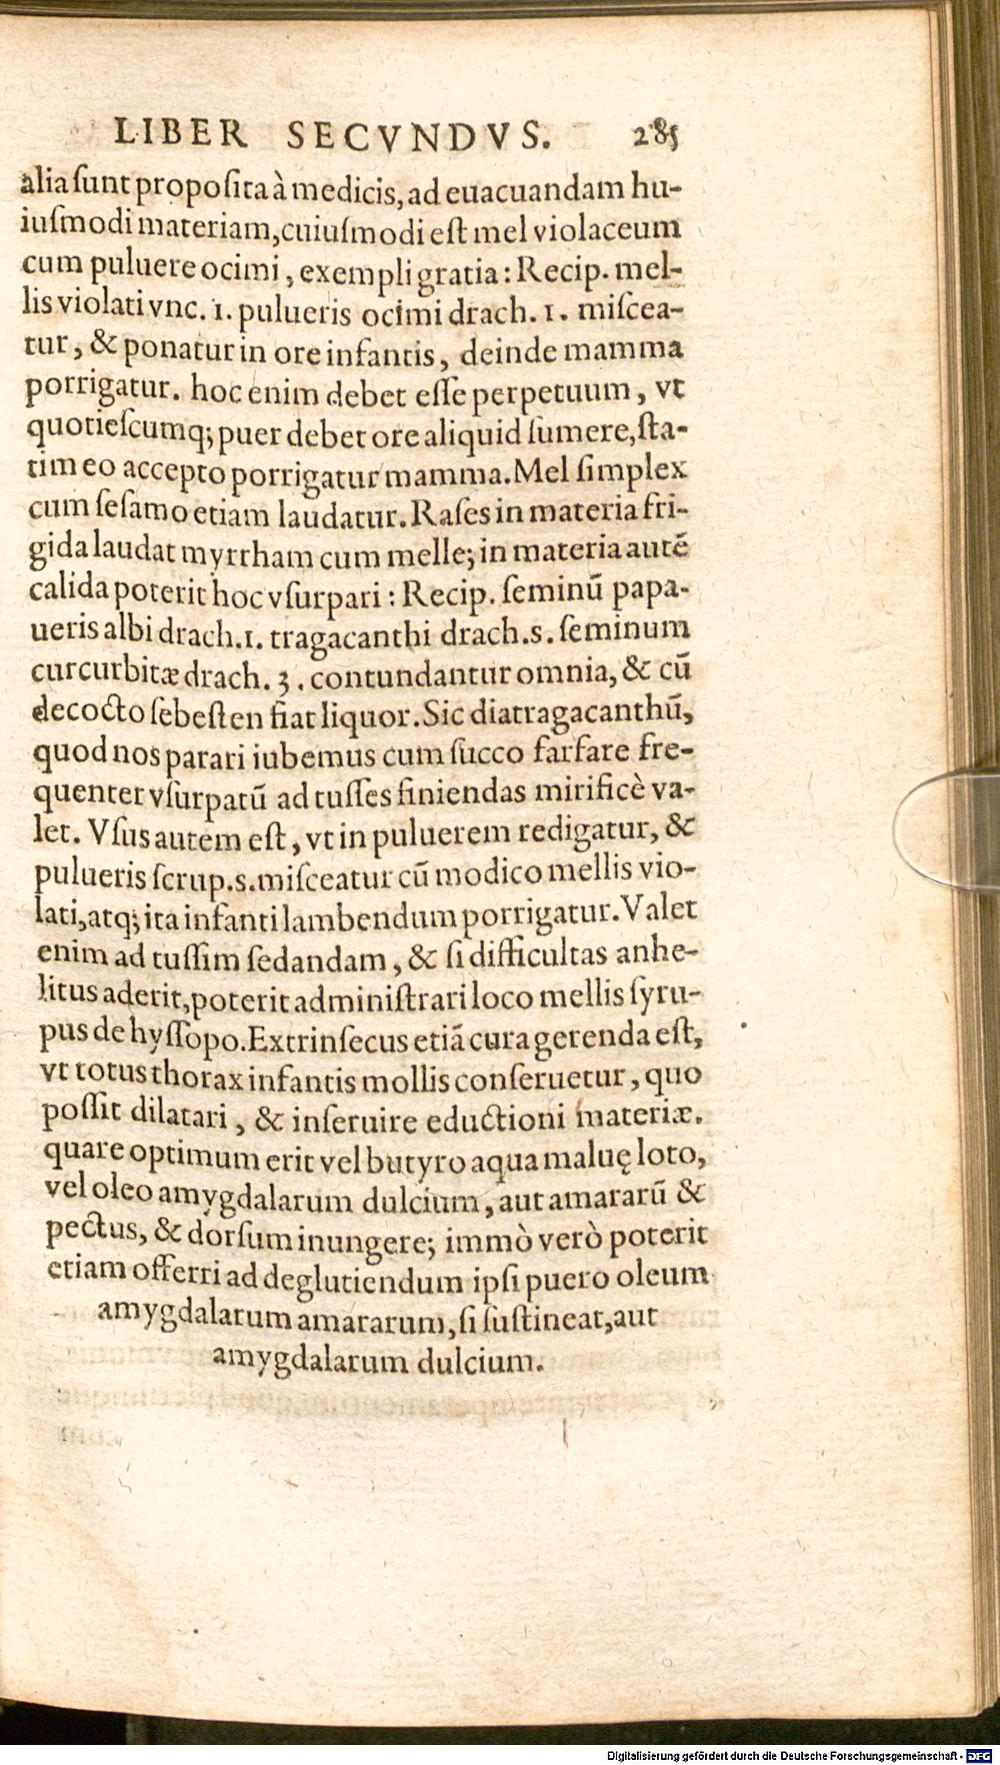 LIBER SECVNDVS. 285
alia ſunt propoſita à medicis, ad euacuandam hu-
iuſmodi materiam, cuiuſmodi eſt mel violaceum
cum puluere ocimi, exempli gratia: Recip. mel-
lis violati vnc. 1. pulueris ocimi drach. 1. miſcea-
tur, & ponatur in ore infantis, deinde mamma
porrigatur. hoc enim debet eſſe perpetuum, vt
quotieſcumq; puer debet ore aliquid ſumere, ſta-
tim eo accepto porrigatur mamma. Mel ſimplex
cum ſeſamo etiam laudatur. Raſes in materia fri-
gida laudat myrrham cum melle; in materia autē
calida poterit hoc vſurpari: Recip. ſeminū papa-
ueris albi drach. 1. tragacanthi drach. s. ſeminum
curcurbitæ drach. 3. contundantur omnia, & cū
decocto ſebeſten fiat liquor. Sic diatragacanthū,
quod nos parari iubemus cum ſucco farfare fre-
quenter vſurpatū ad tuſſes finiendas mirificè va-
let. Vſus autem eſt, vt in puluerem redigatur, &
pulueris ſcrup. s. miſceatur cū modico mellis vio-
lati, atq; ita infanti lambendum porrigatur. Valet
enim ad tuſſim ſedandam, & ſi difficultas anhe-
litus aderit, poterit adminiſtrari loco mellis ſyru-
pus de hyſſopo. Extrinſecus etiā cura gerenda eſt,
vt totus thorax infantis mollis conſeruetur, quo
poſſit dilatari, & inſeruire eductioni materiæ.
quare optimum erit vel butyro aqua maluę loto,
vel oleo amygdalarum dulcium, aut amararū &
pectus, & dorſum inungere; immò verò poterit
etiam offerri ad deglutiendum ipſi puero oleum
amygdalarum amararum, ſi ſuſtineat, aut
amygdalarum dulcium.
Digitalisierung gefördert durch die Deutsche Forschungsgemeinschaft - DFG